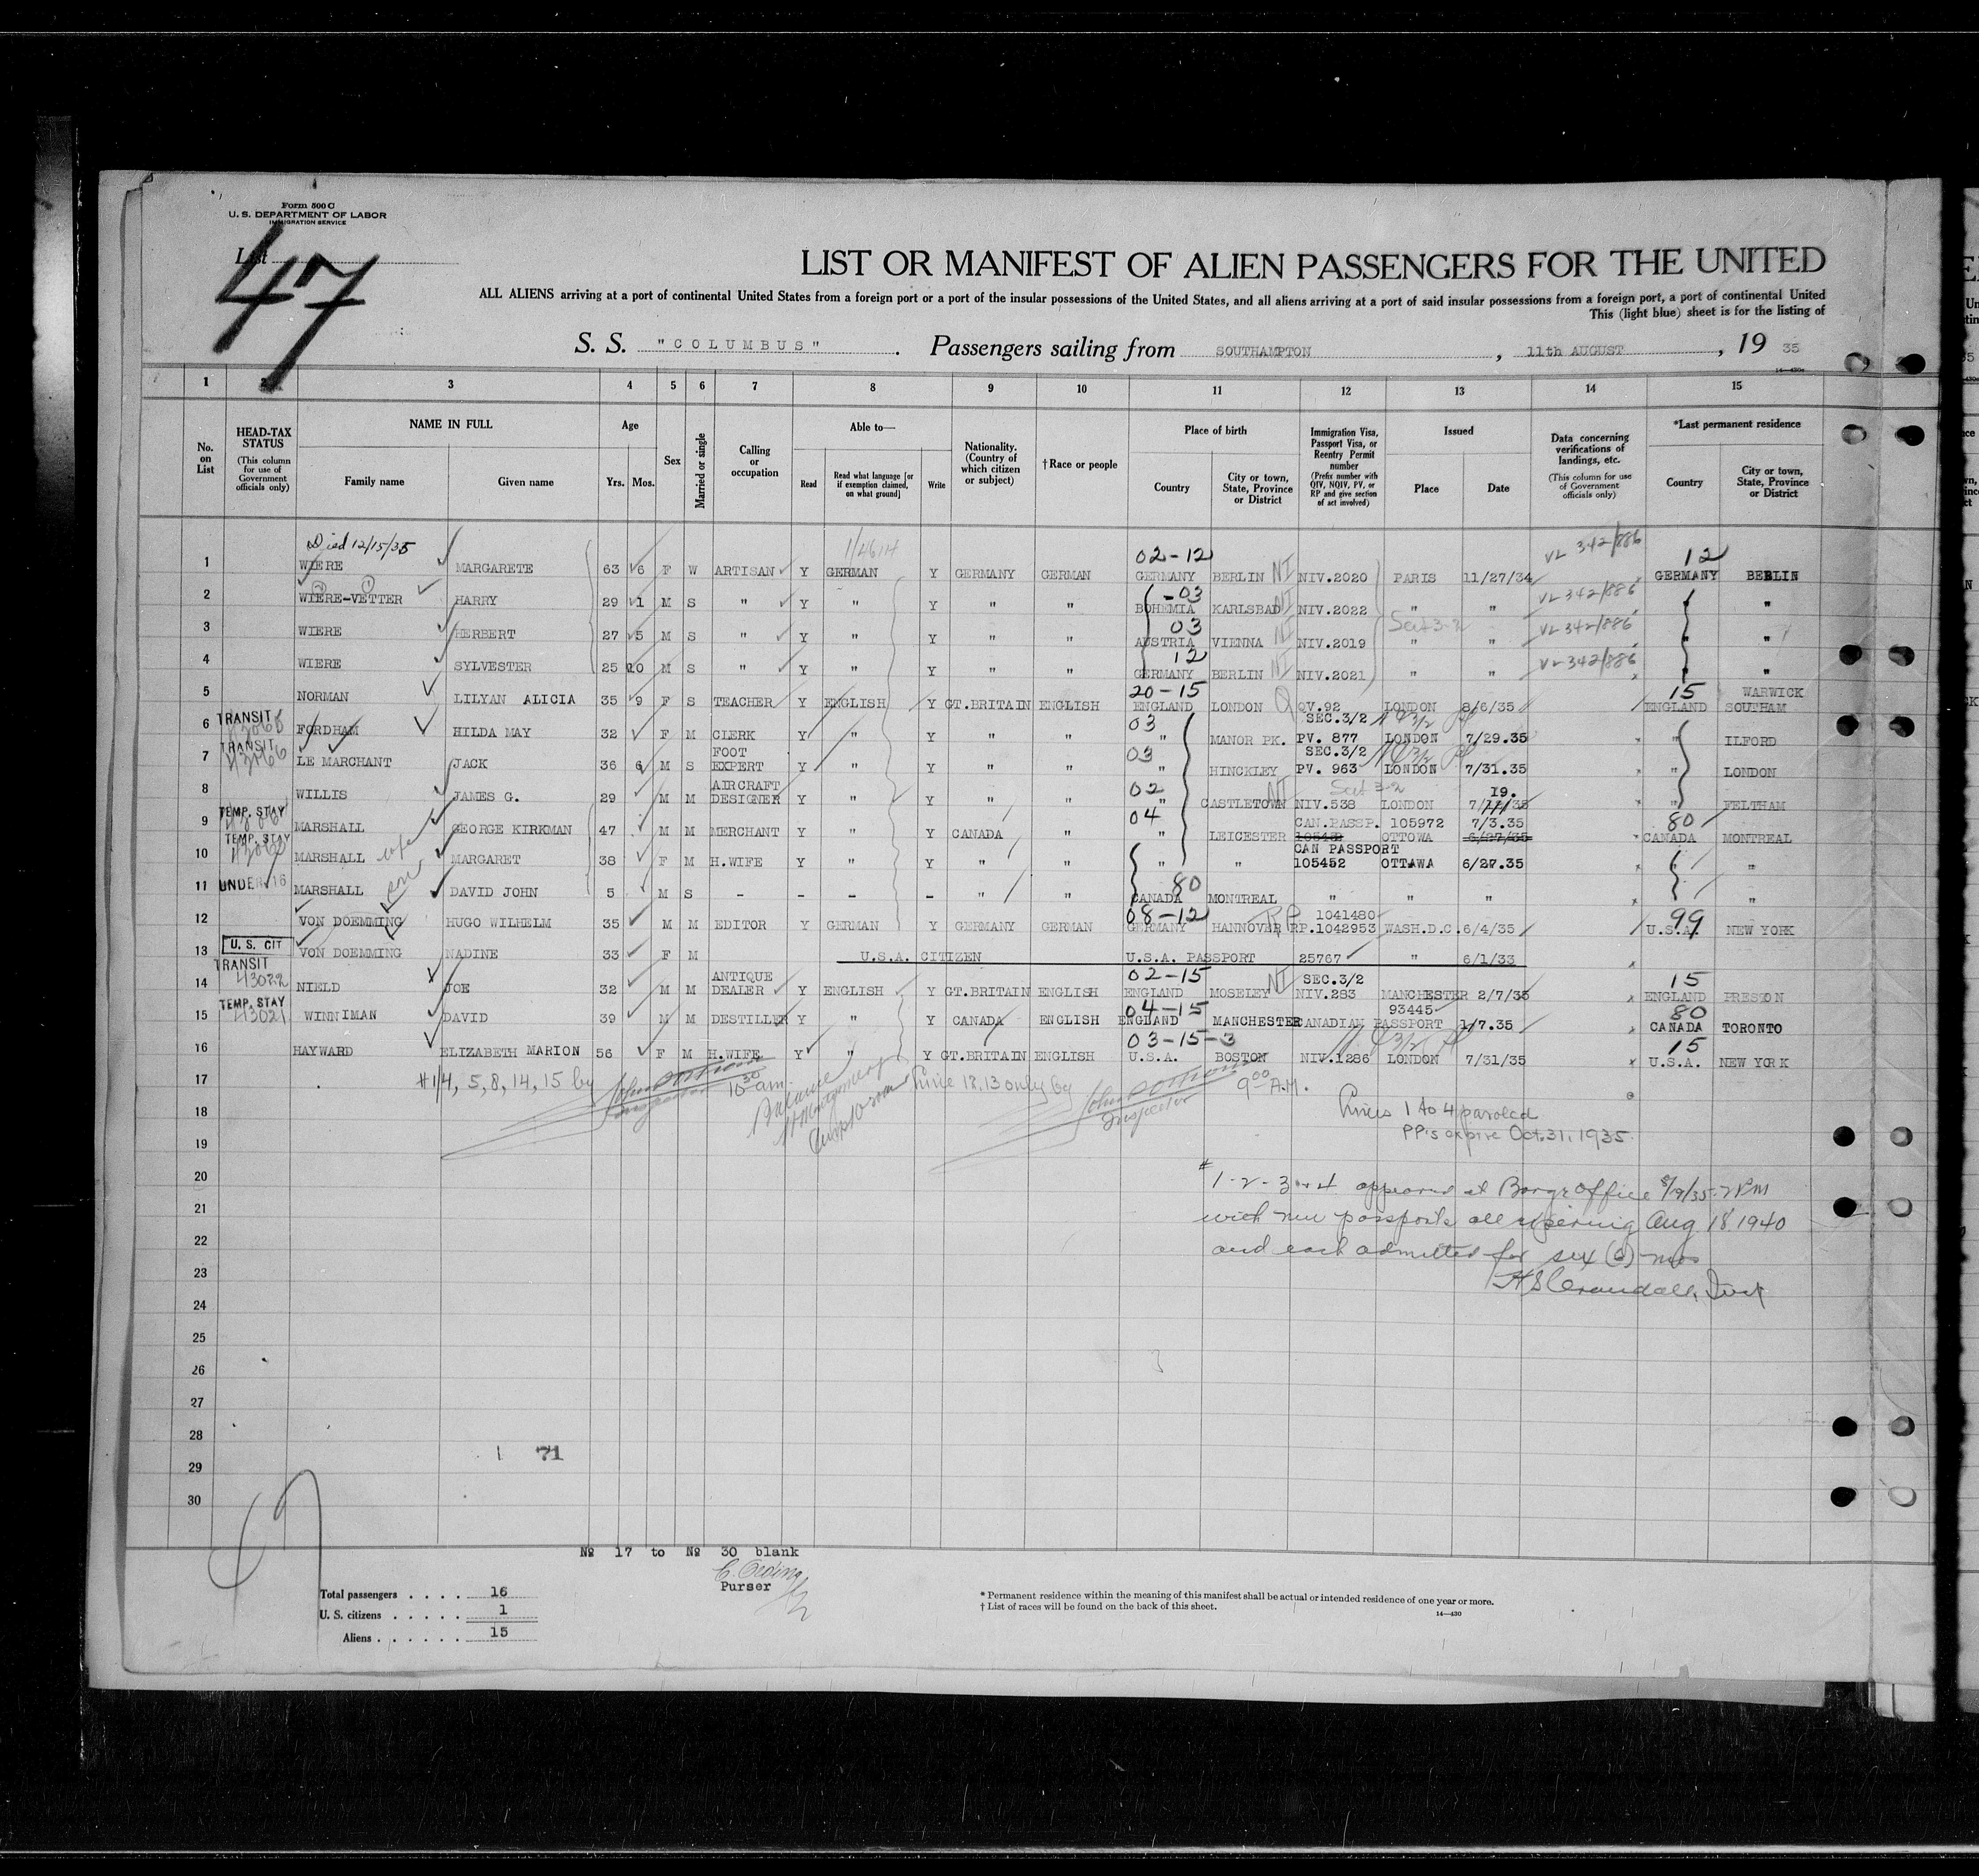 Form 500 C
U. S. DEPARTMENT OF LABOR
IMMIGRATION SERVICE
List
47
LIST OR MANIFEST OF ALIEN PASSENGERS FOR THE UNITED
ALL ALIENS arriving at a port of continental United States from a foreign port or a port of the insular possessions of the United States, and all aliens arriving at a port of said insular possessions from a foreign port, a port of continental United
This (light blue) sheet is for the listing of
S. S. "COLUMBUS". Passengers sailing from SOUTHAMPTON, 11th AUGUST, 19 35
14—430a
1 2 3 4 5 6 7 8 9 10 11 12 13 14 15
No. on List
HEAD-TAX STATUS (This column for use of Government officials only)
NAME IN FULL
Family name Given name
Age
Yrs. Mos.
Sex
Married or single
Calling or occupation
Able to—
Read
Read what language [or if exemption claimed, on what ground]
Write
Nationality. (Country of which citizen or subject)
†Race or people
Place of birth
Country
City or town, State, Province or District
Immigration Visa, Passport Visa, or Reentry Permit number (Prefix number with QIV, NQIV, PV, or RP and give section of act involved)
Issued
Place Date
Data concerning verifications of landings, etc. (This column for use of Government officials only)
*Last permanent residence
Country
City or town, State, Province or District
Died 12/15/35 02-12 VL 342/886 12
1 WIERE MARGARETE 63 6 F W ARTISAN Y GERMAN Y GERMANY GERMAN GERMANY BERLIN NI NIV.2020 PARIS 11/27/34 GERMANY BERLIN
-03 VL 342/886
2 WIERE-VETTER HARRY 29 1 M S " Y " Y " " BOHEMIA KARLSBAD NI NIV.2022 " " " "
03 Sect 3-2 VL 342/886
3 WIERE HERBERT 27 5 M S " Y " Y " " AUSTRIA VIENNA NI NIV.2019 " " " "
12 VL 342/886
4 WIERE SYLVESTER 25 10 M S " Y " Y " " GERMANY BERLIN NI NIV.2021 " " " "
20-15 15 WARWICK
5 NORMAN LILYAN ALICIA 35 9 F S TEACHER Y ENGLISH Y GT.BRITAIN ENGLISH ENGLAND LONDON Q QV.92 LONDON 8/6/35 ENGLAND SOUTHAM
TRANSIT 03 SEC.3/2
6 FORDHAM HILDA MAY 32 F M CLERK Y " Y " " " MANOR PK. PV. 877 LONDON 7/29.35 " ILFORD
TRANSIT FOOT 03 SEC.3/2
7 LE MARCHANT JACK 36 6 M S EXPERT Y " Y " " " HINCKLEY PV. 963 LONDON 7/31.35 " LONDON
AIRCRAFT 02 NI Sect 3-2 19.
8 WILLIS JAMES G. 29 M M DESIGNER Y " Y " " " CASTLETOWN NIV.538 LONDON 7/11/35 " FELTHAM
TEMP. STAY 04 CAN.PASSP. 105972 7/3.35 80
9 MARSHALL GEORGE KIRKMAN 47 M M MERCHANT Y " Y CANADA " " LEICESTER 105452 OTTOWA 6/27/35 CANADA MONTREAL
TEMP. STAY CAN PASSPORT
10 MARSHALL wife MARGARET 38 F M H.WIFE Y " Y " " " " 105452 OTTAWA 6/27.35 " "
UNDER 16 80
11 MARSHALL son DAVID JOHN 5 M S - - - - " " CANADA MONTREAL " " " " "
08-12 RP 1041480 99
12 VON DOEMMING HUGO WILHELM 35 M M EDITOR Y GERMAN Y GERMANY GERMAN GERMANY HANNOVER RP.1042953 WASH.D.C. 6/4/35 U.S.A. NEW YORK
U. S. CIT
13 VON DOEMMING NADINE 33 F M U.S.A. CITIZEN U.S.A. PASSPORT 25767 " 6/1/33
TRANSIT 43022 ANTIQUE 02-15 NI SEC.3/2 15
14 NIELD JOE 32 M M DEALER Y ENGLISH Y GT.BRITAIN ENGLISH ENGLAND MOSELEY NIV.283 MANCHESTER 2/7/35 ENGLAND PRESTON
TEMP. STAY 43021 04-15 93445 80
15 WINNIMAN DAVID 39 M M DESTILLER Y " Y CANADA ENGLISH ENGLAND MANCHESTER CANADIAN PASSPORT 1/7.35 CANADA TORONTO
03-15-3 15
16 HAYWARD ELIZABETH MARION 56 F M H.WIFE Y " Y GT.BRITAIN ENGLISH U.S.A. BOSTON NIV.1286 LONDON 7/31/35 U.S.A. NEW YORK
17 #1/4, 5, 8, 14, 15 by Inspector 10 30 am. 12, 13 only by Inspector 9 00 A.M.
18 Lines 1 to 4 paroled
19 PP's expire Oct. 31, 1935
20 # 1-2-3-4 appeared at Barge Office 8/19/35 2 PM
21 with new passports all expiring Aug 18 1940
22 and each admitted for six (6) mos
23 H S Crandall, Insp
24
25
26
27
28
29 71
30
№ 17 to № 30 blank
Purser
Total passengers . . . . 16
U. S. citizens . . . . . 1
Aliens . . . . . . 15
* Permanent residence within the meaning of this manifest shall be actual or intended residence of one year or more.
† List of races will be found on the back of this sheet.
14—430